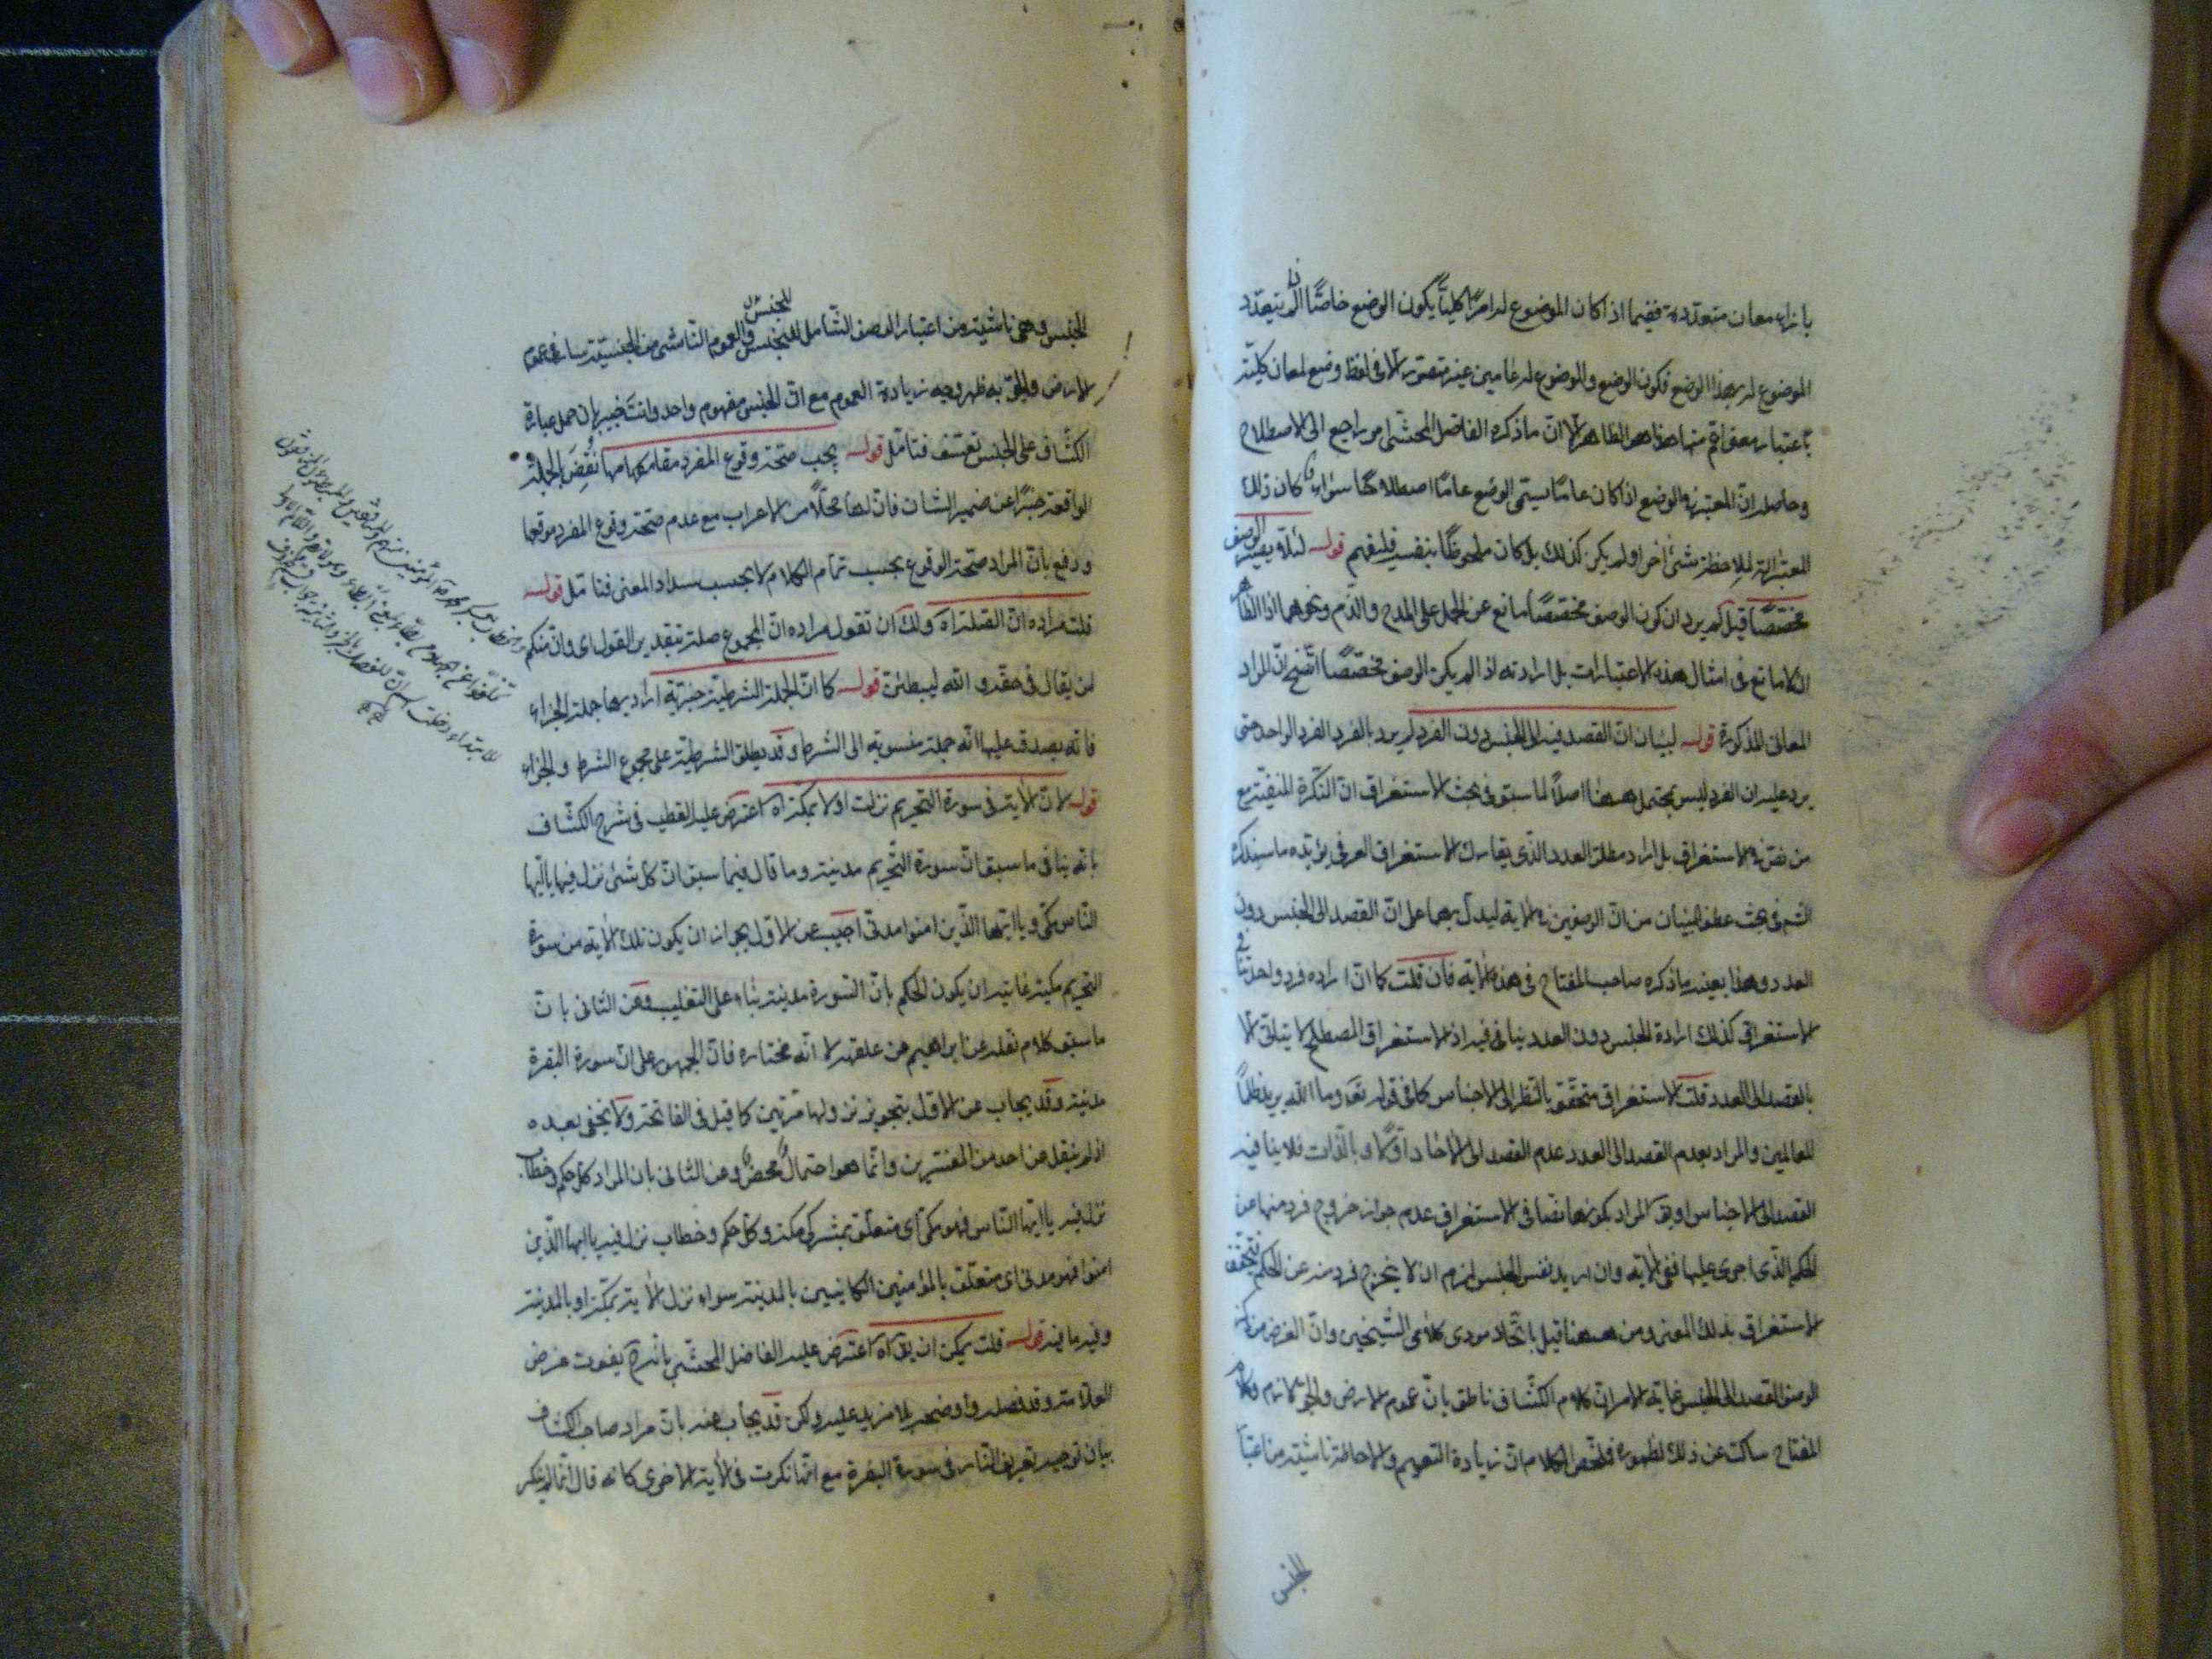 بازاء معان متعددة ففيما اذا كان الموضوع له امرا كليا يكون الوضع خاصا اذ لم يتعدد
الموضوع له بهذا الوضع فكون الوضع والموضوع له عامين غير متصور الا في لفظ وضع لمعان كلية
باعتبار معنى اعم منها هذا هو الظاهر الا ان ما ذكره الفاضل المحشى امر راجع الى الاصطلاح
وحاصله ان المعتبر في الوضع اذا كان عاما يسمى الوضع عاما اصطلاحا سواء كان ذلك
المعتبر الة لملاحظة شئ اخر او لم يكن كذلك بل كان ملحوظا بنفسه فليفهم قوله لئلا يصير الوصف
مخصصا قيل لم يرد ان كون الوصف مخصصا مانع عن الحمل على المدح والذم ونحوهما اذ الظاهر
ان لا مانع في امثال هذه الاعتبارات بل اراد انه اذا لم يكن الوصف مخصصا اتضح ان المراد
المعانى المذكورة قوله لبيان ان القصد فيه الى الجنس دون الفرد لم يرد بالفرد الفرد الواحد حتى
يرد عليه ان الفرد ليس بمحتمل ههنا اصلا لما سبق في بحث الاستغراق ان النكرة المنفية مع
من نص في الاستغراق بل اراد مطلق العدد الذى يقارن الاستغراق العرفي يؤيده ما سيذكره
الشم في بحث عطف البيان من ان الوصفين في الاية ليدل بهما على ان القصد الى الجنس دون
العدد وهذا بعينه ما ذكره صاحب المفتاح في هذه الاية فان قلت كما ان ارادة فرد واحد تنافي
الاستغراق كذلك ارادة الجنس دون العدد ينافي فيه اذ الاستغراق المصطلح لا يتأتى الا
بالقصد الى العدد قلت الاستغراق متحقق بالنظر الى الاجناس كما في قوله تع وما الله يريد ظلما
للعالمين والمراد بعدم القصد الى العدد عدم القصد الى الآحاد اولا وبالذات فلا ينافيه
القصد الى الاجناس او يق المراد بكونها نصا في الاستغراق عدم جواز خروج فرد منها عن
الحكم الذى اجرى عليها ففي الاية وان اريد نفس الجنس لزم ان لا يخرج فرد منه عن الحكم فتحقق
الاستغراق بذلك المعنى ومن ههنا قيل باتحاد مودى كلامى الشيخين وان الغرض من ذكر
الوصف القصد الى الجنس غاية الامر ان كلام الكشاف ناطق بان عموم الارض والجو لازم وكلام
المفتاح ساكت عن ذلك لظهوره فملخص الكلام ان زيادة التعميم والاحاطة ناشية من اعتبار
الجنس
الجنس وهى ناشية من اعتبار الوصف الشامل للجنس والعموم الناشى من الجنسية سار في عموم
الارض والجو به ظهر وجه زيادة العموم مع ان الجنس مفهوم واحد وانت خبير بان حمل عبارة
الكشاف على الجنس تعسف فتامل قوله يجب صحة وقوع المفرد مقامها نقض بالجملة
الواقعة خبرا عن ضمير الشان فان لها محلا من الاعراب مع عدم صحة وقوع المفرد موقعها
ودفع بان المراد صحة الوقوع بحسب تمام الكلام لا بحسب سداد المعنى فتامل قوله
قلت مراده ان القصلة اه ولك ان تقول مراده ان المجموع صلة بتقدير القول اى وان منكم
لمن يقال في حقه والله ليبطئن قوله كما ان الجملة الشرطية خبرية اراد بها جملة الجزاء
فانه يصدق عليها انه جملة منسوبة الى الشرط وقد يطلق الشرطية على مجموع الشرط والجزاء
قوله لان الاية في سورة التحريم نزلت اولا بمكة اه اعترض عليه القطب في شرح الكشاف
بانه ينافى ما سبق ان سورة التحريم مدنية وما قال فيما سبق ان كل شئ نزل فيه يا ايها
الناس مكى ويا ايها الذين امنوا مدنى اجيب عن الاول بجواز ان يكون تلك الاية من سورة
التحريم مكية غايته ان يكون الحكم بان السورة مدنية بناء على التغليب وعن الثانى بان
ما سبق كلام نقله عن ابراهيم عن علقمة لا انه مختاره فان الجمهور على ان سورة البقرة
مدنية وقد يجاب عن الاول بتجويز نزولها مرتين كما قيل في الفاتحة ولا يخفى بعده
اذ لم ينقل عن احد من المفسرين وانما هو احتمال محض وعن الثانى بان المراد كل حكم وخطاب
نزل فيه يا ايها الناس فهو مكى اى متعلق بمشركى مكة وكل حكم وخطاب نزل فيه يا ايها الذين
امنوا فهو مدنى اى متعلق بالمؤمنين الكاينين بالمدينة سواء نزل الاية بمكة او بالمدينة
وفيه ما فيه قوله قلت يمكن ان يق اه اعترض عليه الفاضل المحشى بانه ح يفوت غرض
العلامة وقد فصله واوضحه بما لا مزيد عليه ولكن قد يجاب عنه بان مراد صاحب الكشاف
بيان توجيه تعريف النار في سورة البقرة مع انها نكرت في الاية الاخرى كانه قال انما لم ينكر